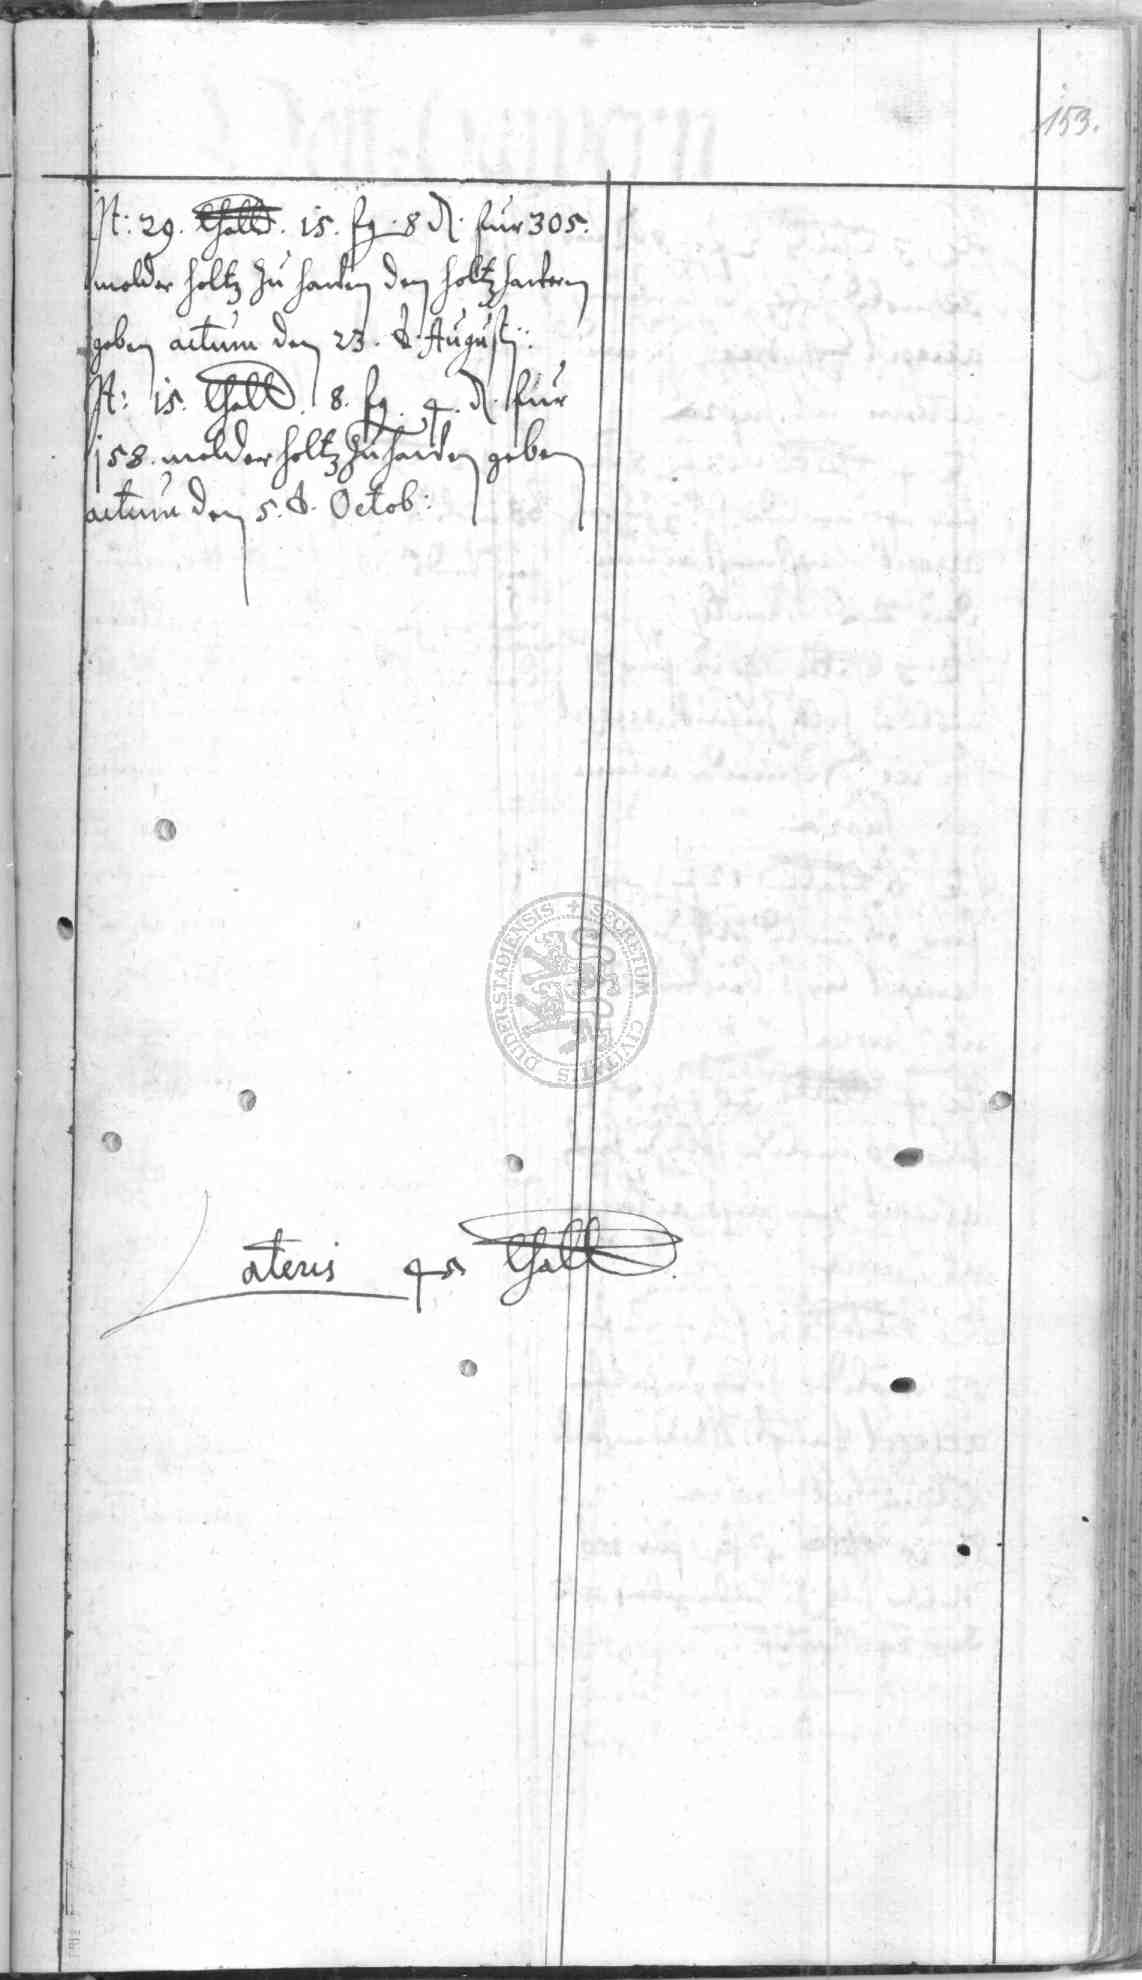 153.
It: 29. thall. 15. fg. 8 d. fur 305.
molder holtz zu hauen den holtzhauern
geben actum den 23. d. Augusti:
It: 15. thall. 8. fg. 4. d. fur
158. molder holtz zu hauen geben
actum den 5. d. Octob:
SECRETUM CIVITATIS DUDERSTADIENSIS
Lateris 45 thall